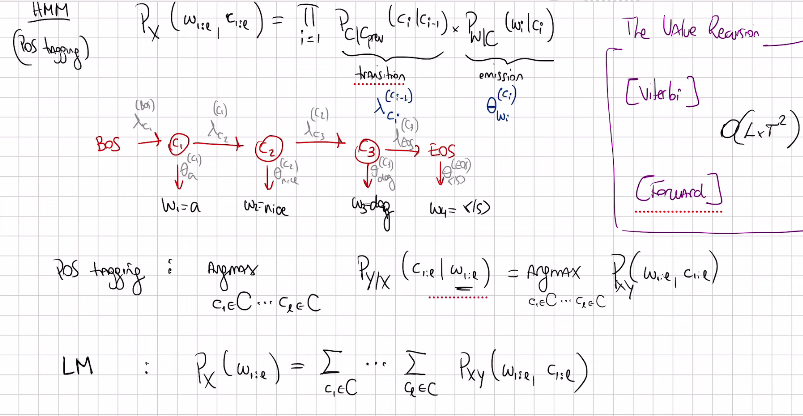 HMM
(POS tagging)
P_X (w_{1:ℓ}, c_{1:ℓ}) = ∏_{i=1} P_{C|Cprev} (c_i|c_{i-1}) × P_{W|C} (w_i|c_i)
transition
emission
λ_{c_i}^{(c_{i-1})}
θ_{w_i}^{(c_i)}
λ_{c_1}^{(BOS)} λ_{c_2}^{(c_1)} λ_{c_3}^{(c_2)} λ_{EOS}^{(c_3)}
BOS → c_1 → c_2 → c_3 → EOS
θ_a^{(c_1)} θ_{nice}^{(c_2)} θ_{dog}^{(c_3)} θ_{</s>}^{(EOS)}
w_1=a w_2=nice w_3=dog w_4=</s>
The Value Recursion
[Viterbi]
O(L×T²)
[Forward]
POS tagging : Argmax_{c_1∈C ... c_ℓ∈C} P_{Y|X} (c_{1:ℓ} | w_{1:ℓ}) = Argmax_{c_1∈C ... c_ℓ∈C} P_{XY} (w_{1:ℓ}, c_{1:ℓ})
LM : P_X (w_{1:ℓ}) = ∑_{c_1∈C} ... ∑_{c_ℓ∈C} P_{XY} (w_{1:ℓ}, c_{1:ℓ})